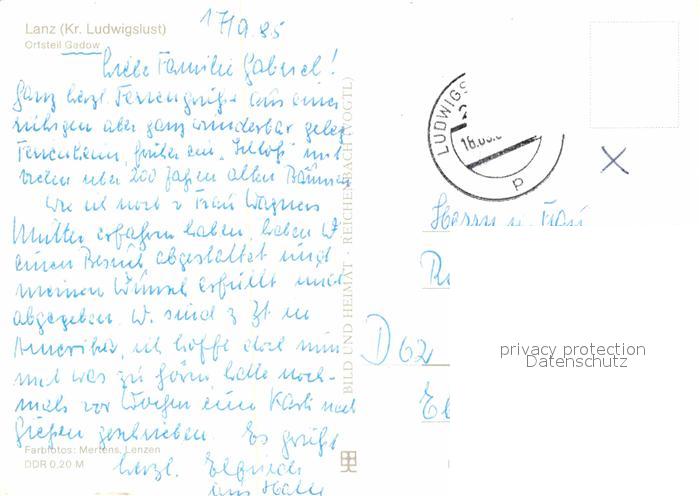 Lanz (Kr. Ludwigslust)
Ortsteil Gadow
Liebe Familie Gabriel!
Ganz herzl. Feriengrüße aus einem
ruhigen aber ganz wunderbar geleg.
Ferienheim, früher ein "Schloß" mit
vielen über 200 Jahren alten Bäumen
Wie ich noch v Frau Wagners
Mutter erfahren haben, haben W
einen Besuch abgestattet u
meinen Wunsch erfüllt und
abgegeben. W. sind z Zt in
Amerika, ich hoffe doch nun
mal was zu hören, hatte noch-
mals vor Wochen eine Karte nach
Gießen geschrieben. Es grüßt
herzl. Elfriede
aus Halle
Farbfotos: Mertens, Lenzen
DDR 0,20 M
BILD UND HEIMAT · REICHENBACH (VOGTL)
LUDWIGS
Herrn u. Frau
D 62
privacy protection
Datenschutz